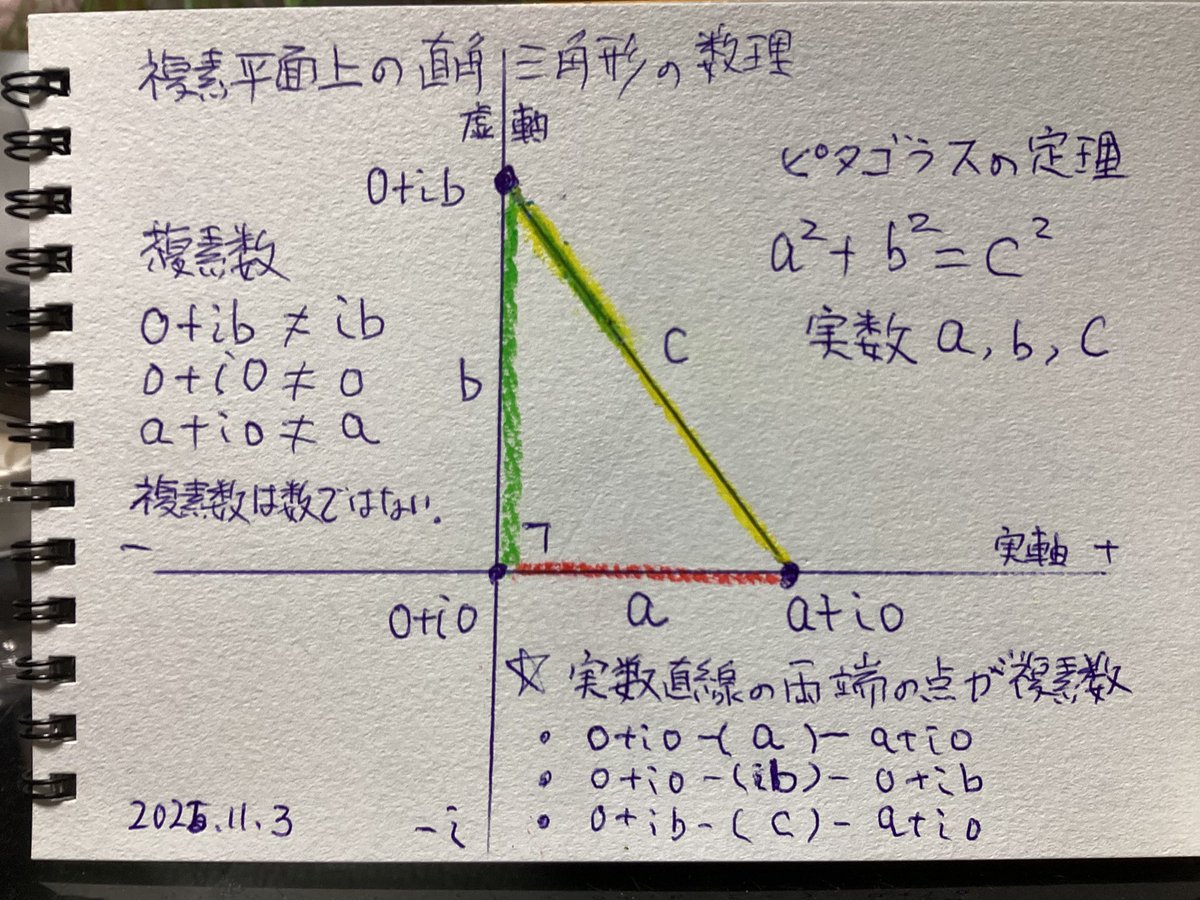 複素平面上の直角三角形の数理
虚軸
0+ib
ピタゴラスの定理
a²+b²=c²
実数 a, b, c
複素数
0+ib≠ib
0+i0≠0
a+i0≠a
複素数は数ではない.
b
c
−
実軸 +
0+i0
a
a+i0
☆ 実数直線の両端の点が複素数
• 0+i0-(a)-a+i0
• 0+i0-(ib)-0+ib
• 0+ib-(c)-a+i0
-i
2025.11.3